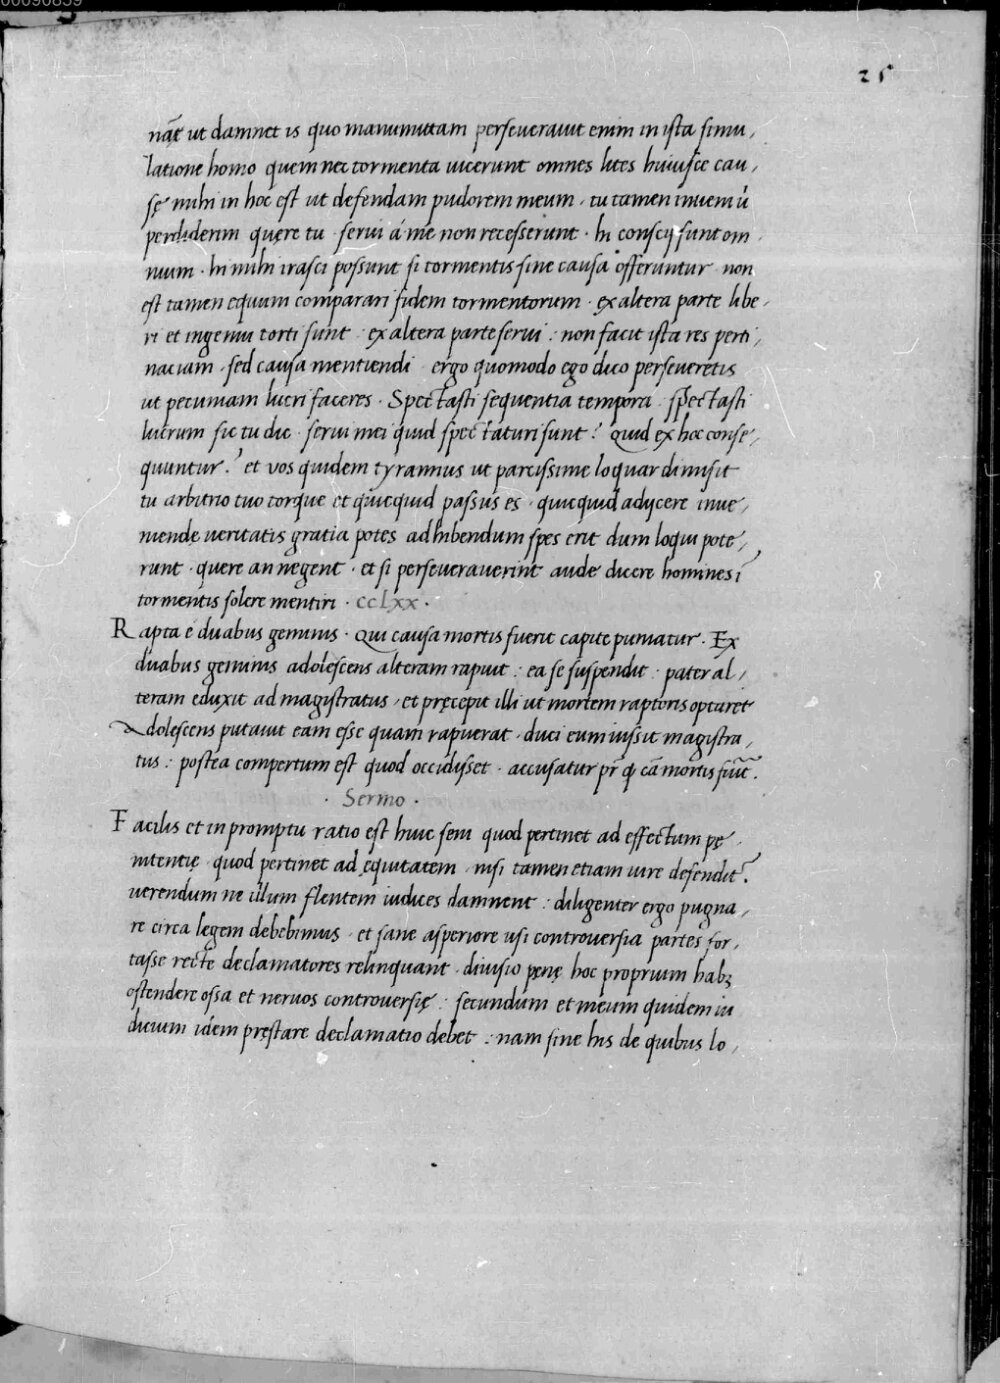 00090859
25
nāt ut damnet is quo manumittam perseveravit enim in ista simu,
latione homo quem nec tormenta vicerunt omnes lites huiusce cau,
sę mihi in hoc est ut defendam pudorem meum · tu tamen invem ū
perdiderim quęre tu · servi á me non recesserunt · hi conscij sunt om
nium · hi mihi irasci possunt si tormentis sine causa offeruntur non
est tamen equum comparari fidem tormentorum · ex altera parte libe,
ri et ingenui torti sunt · ex altera parte servi : non facit ista res perti,
naciam · sed causa mentiendi · ergo quomodo ego dico perseveretis
ut pecuniam lucri faceres · Spectasti sequentia tempora · spectasti
lucrum sic tu dic · servi mei quid spectaturi sunt? Quid ex hoc conse,
quuntur? et vos quidem tyrannus ut parcissime loquar dimisit
tu arbitrio tuo torque et quicquid passus es · quicquid adijcere inve,
niende veritatis gratia potes adhibendum spes erit dum loqui pote,
runt · quere an negent · et si perseveraverint aude dicere homines ī
tormentis solere mentiri · CCLXX ·
Rapta e duabus geminis · Qui causa mortis fuerit capite puniatur · Ex
duabus geminis adolescens alteram rapuit : ea se suspendit · pater al,
teram eduxit ad magistratus · et pręcepit illi ut mortem raptoris optaret
Adolescens putavit eam esse quam rapuerat · duci eum iussit magistra,
tus : postea compertum est quod occidisset · accusatur pr̄ q̄ cā mortis fūit.
· Sermo ·
Facilis et in promptu ratio est huic seni quod pertinet ad effectum pę
nitentię · quod pertinet ad ęquitatem · nisi tamen etiam iure defendit?
verendum ne illum flentem iudices damnent : diligenter ergo pugna,
re circa legem debebimus · et sane asperiore usi controversia partes for,
tasse recte declamatores relinquant · divisio pęnę hoc proprium habꝫ
ostendere ossa et nervos controversię : secundum et meum quidem iu
dicium idem pręstare declamatio debet : nam sine his de quibus lo,